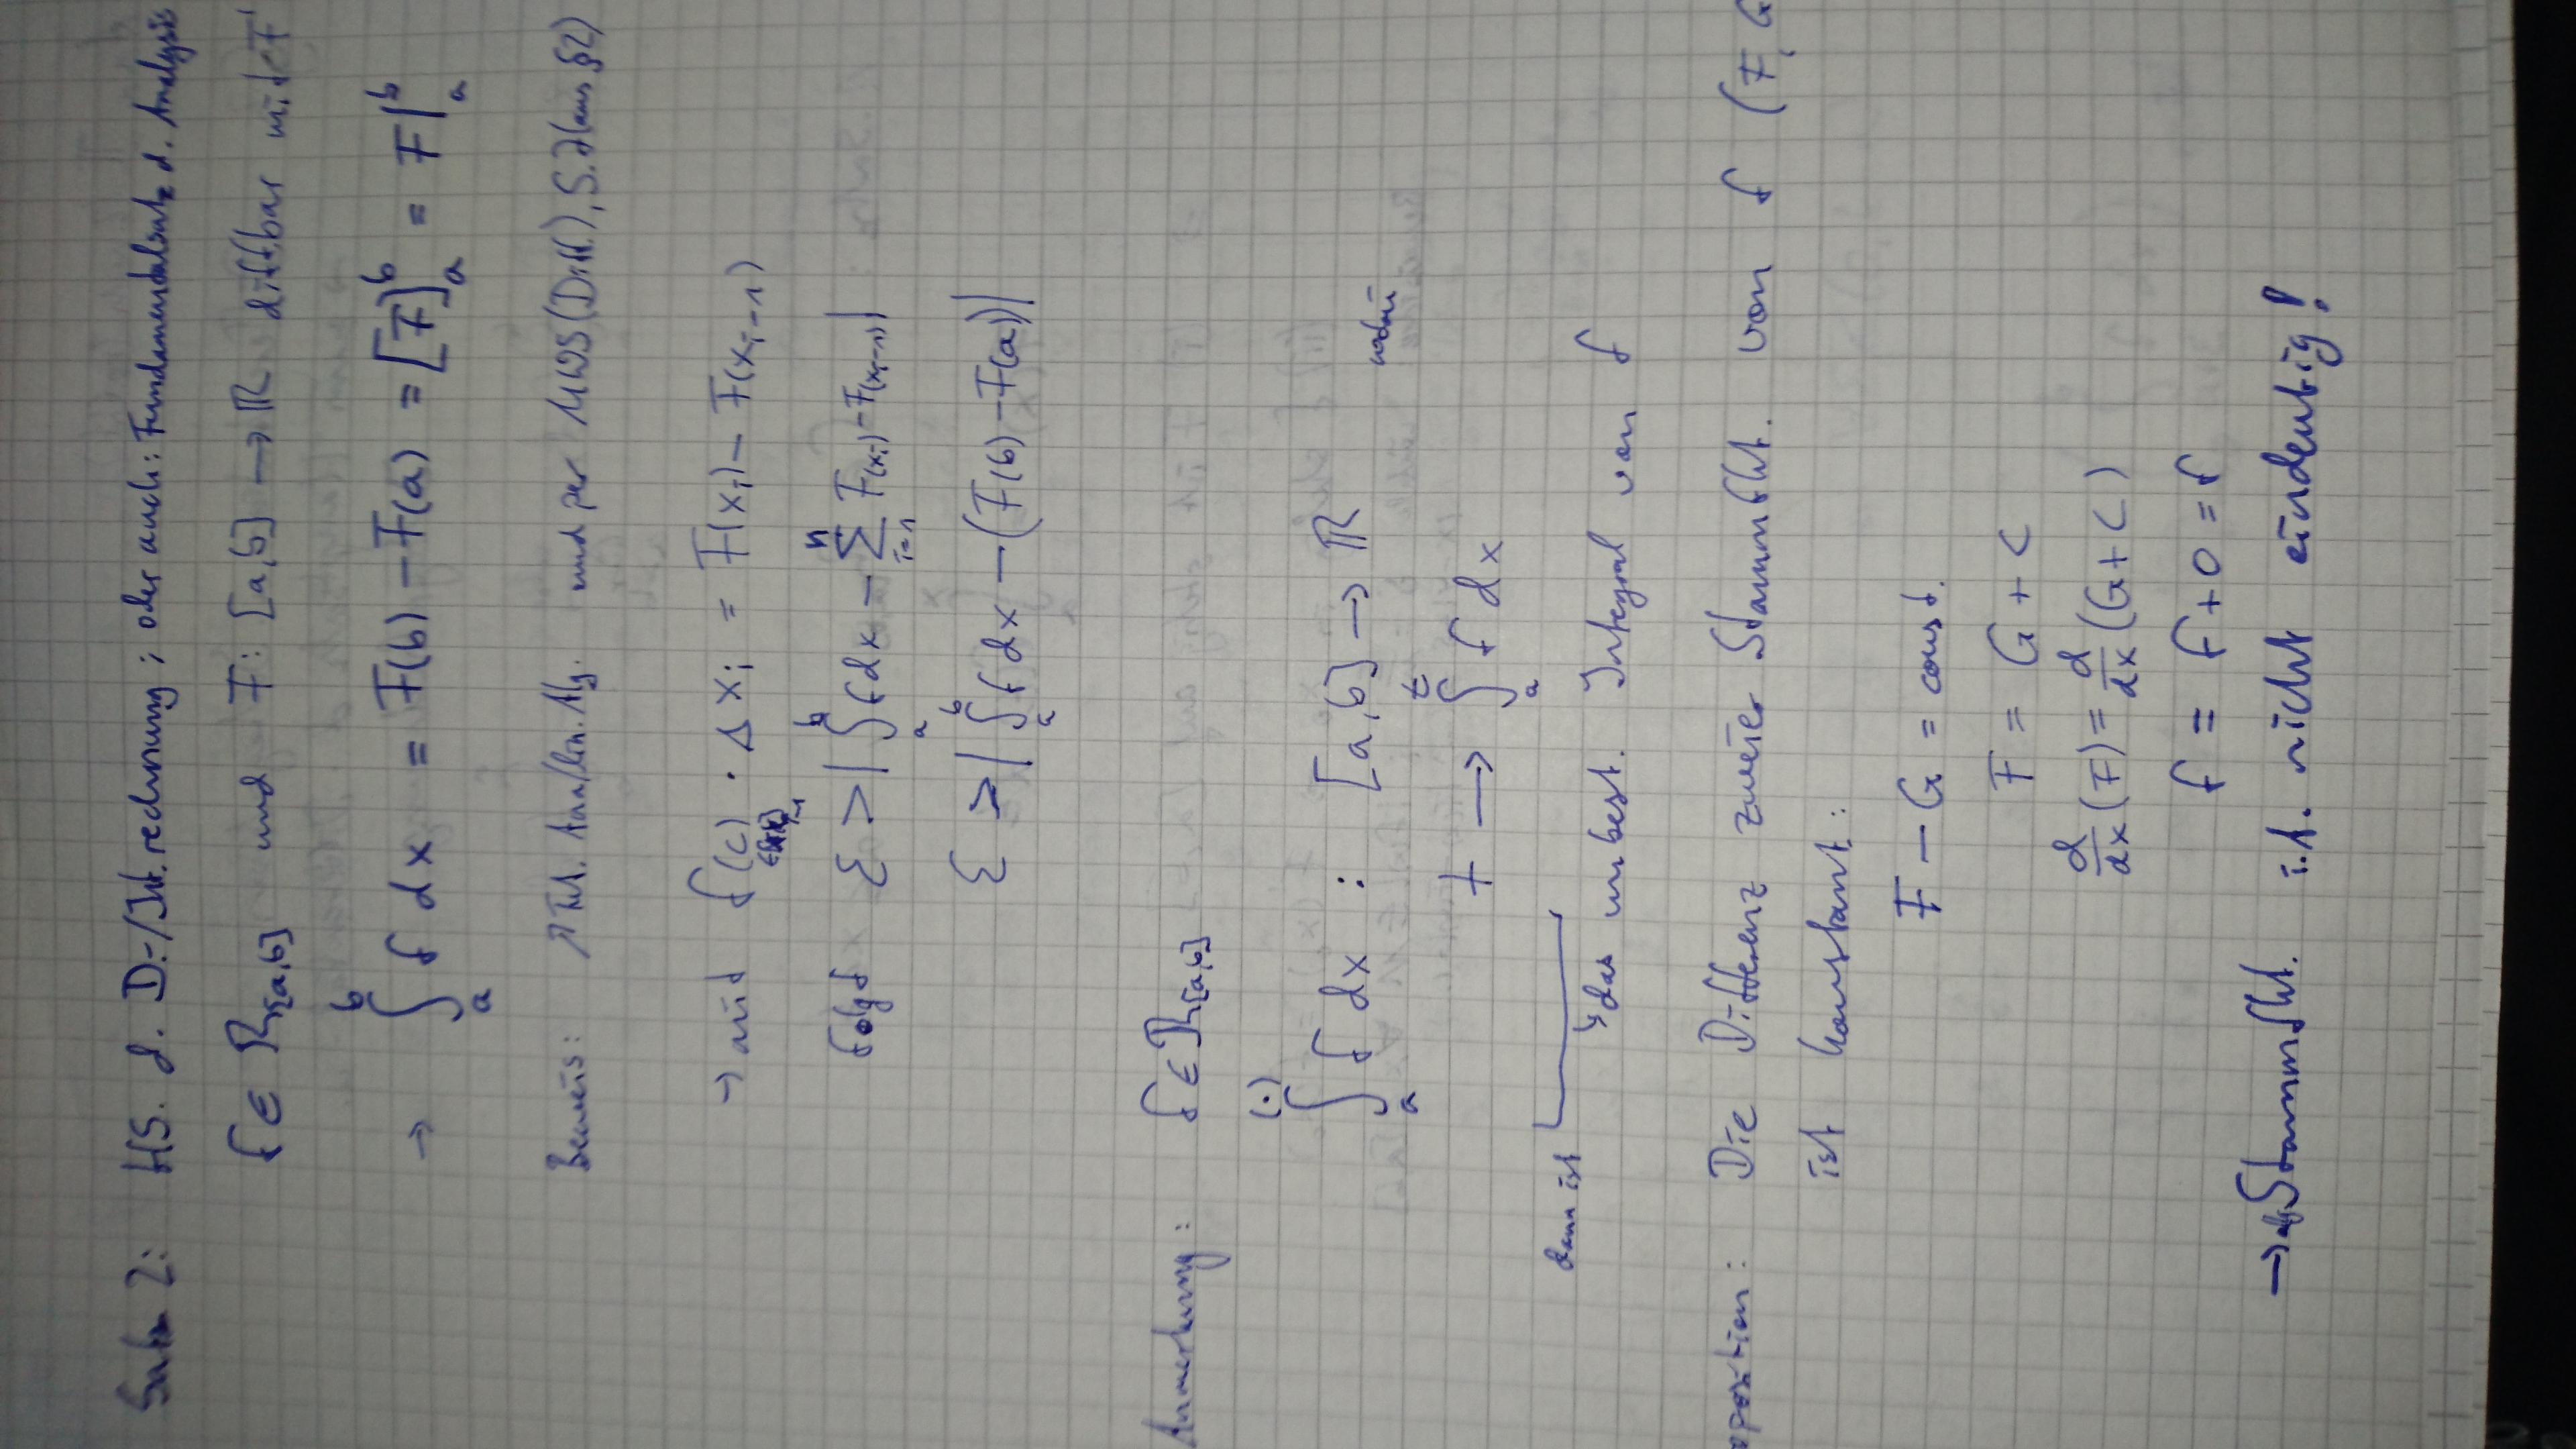 Satz 2: HS. d. D.-/Int.rechnung; oder auch: Fundamentalsatz d. Analysis
f ∈ R[a,b] und F: [a,b] → ℝ diffbar mit F'
→ ∫_a^b f dx = F(b) - F(a) = [F]_a^b = F|_a^b
Beweis: ↗ Ana/lin. Alg. und per MWS(Diff.), S.7(aus §2)
→ mit f(c) · Δx_i = F(x_i) - F(x_{i-1})
folgt ε > | ∫_a^b f dx - Σ_{i=1}^n F(x_i) - F(x_{i-1}) |
ε > | ∫_a^b f dx - (F(b) - F(a)) |
Anmerkung: f ∈ R[a,b]
∫_a^(·) f dx : [a,b] → ℝ
t → ∫_a^t f dx
dann ist
↳ das unbest. Integral von f
oposition: Die Differenz zweier Stammfkt. von f (F, G
ist konstant:
F - G = const.
F = G + C
d/dx (F) = d/dx (G + C)
f = f + 0 = f
→ Stammfkt. i.A. nicht eindeutig!